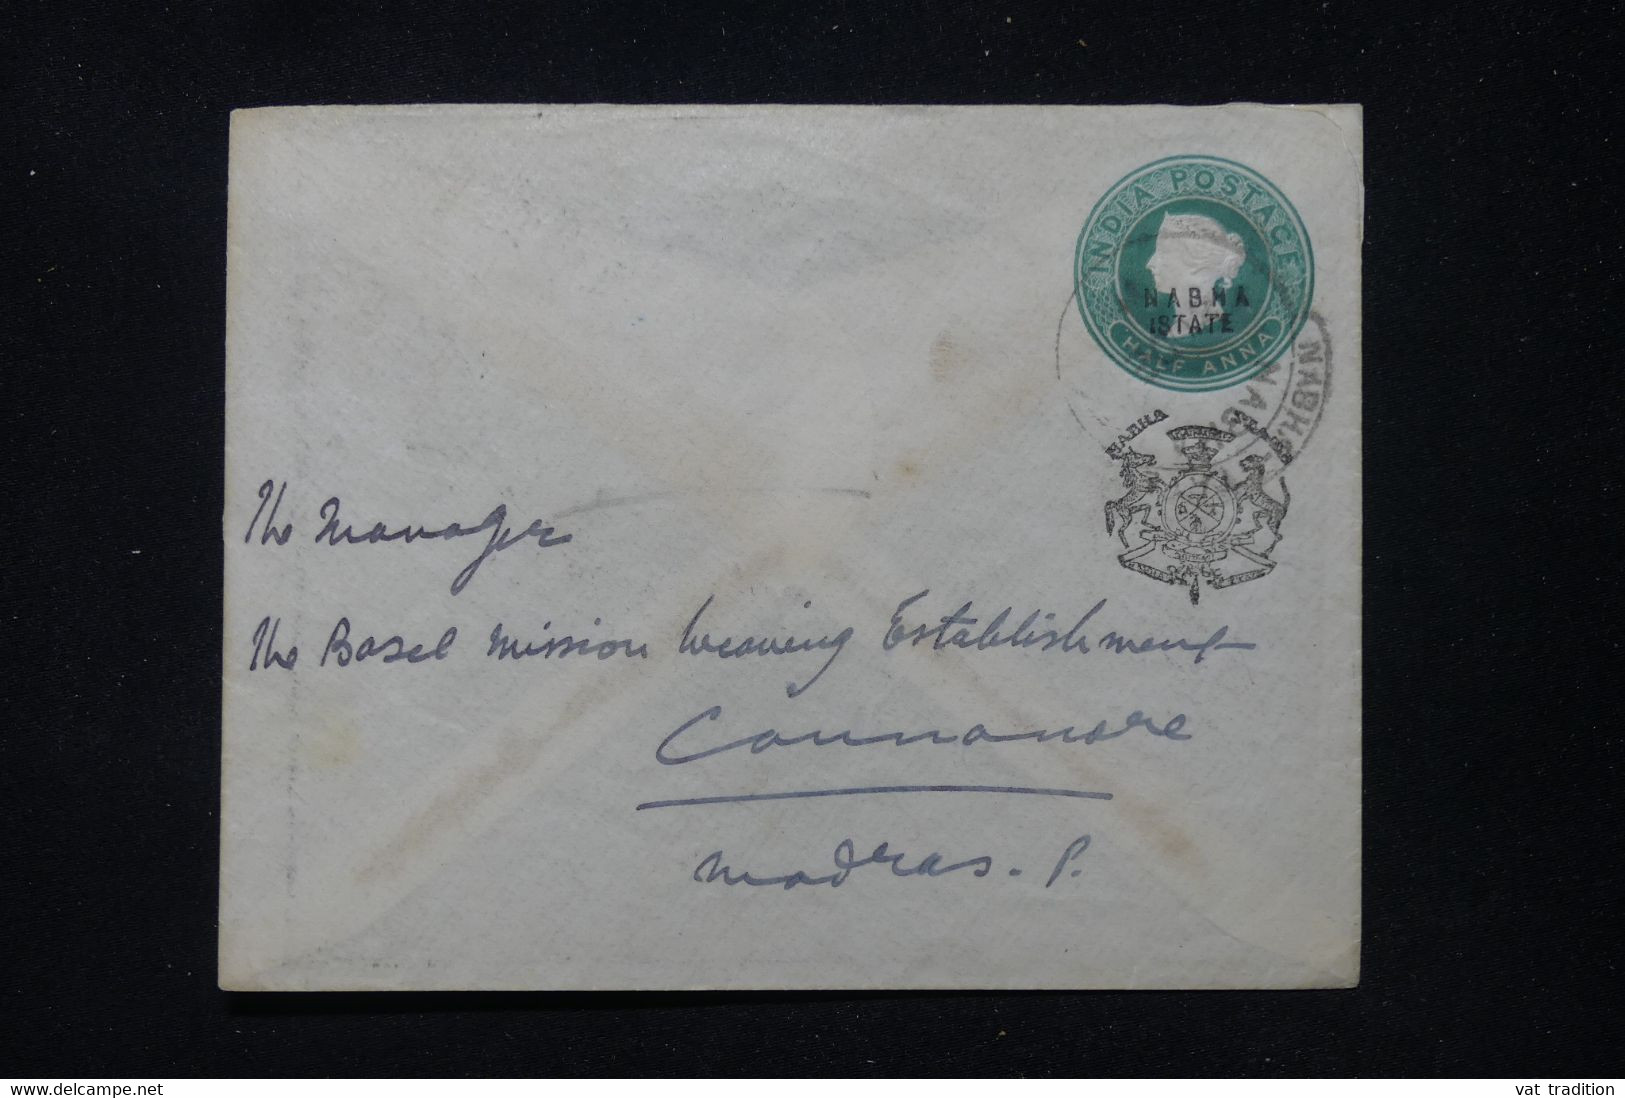 INDIA POSTAGE
NABHA
STATE
HALF ANNA
NABHA
NABHA STATE
The Manager
The Basel Mission Weaving Establishment
Cannanore
Madras. P.
www.delcampe.net
vat_tradition